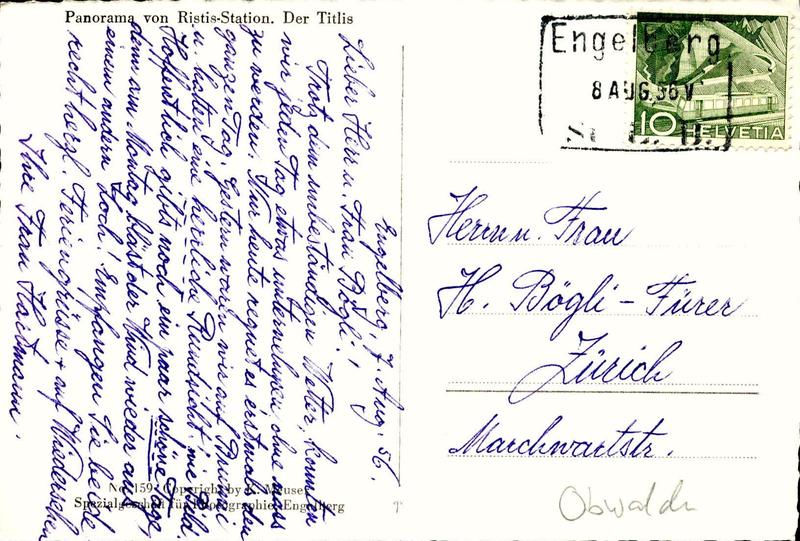 Panorama von Ristis-Station. Der Titlis
Engelberg, 7. Aug. 56.
Lieber Herr u. Frau Bögli!
Trotz dem unbeständigen Wetter, konnten
wir jeden Tag etwas unternehmen ohne nass
zu werden. Nur heute regnet es erstmals den
ganzen Tag. Gestern waren wir auf Brunni
u. hatten eine herrliche Rundsicht.
Hoffentlich gibts noch ein paar schöne Tage,
denn am Montag bläst der Wind wieder aus
einem andern Loch! Empfangen Sie beide
recht herzl. Feriengrüsse + auf Wiedersehen
Ihre Frau
No. 159 Copyright by K. Meuser
Spezialgeschäft für Photographie Engelberg
Engelberg
8 AUG. 56 V
10 HELVETIA
Herrn u. Frau
H. Bögli-Fürer
Zürich
Marchwartstr.
Obwalden